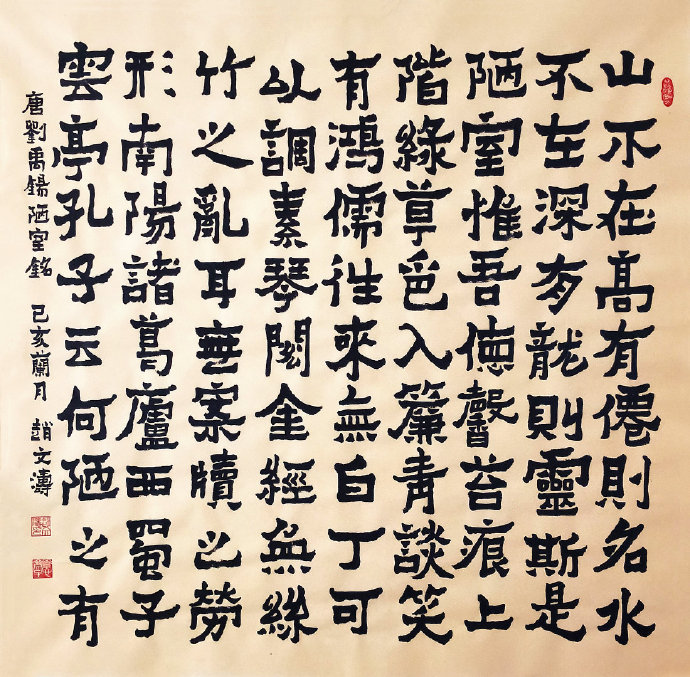 山不在高有僊則名水
不在深有龍則靈斯是
陋室惟吾德馨苔痕上
階綠草色入簾青談笑
有鴻儒往來無白丁可
以調素琴閱金經無絲
竹之亂耳無案牘之勞
形南陽諸葛廬西蜀子
雲亭孔子云何陋之有
唐劉禹錫陋室銘 己亥蘭月 趙文濤